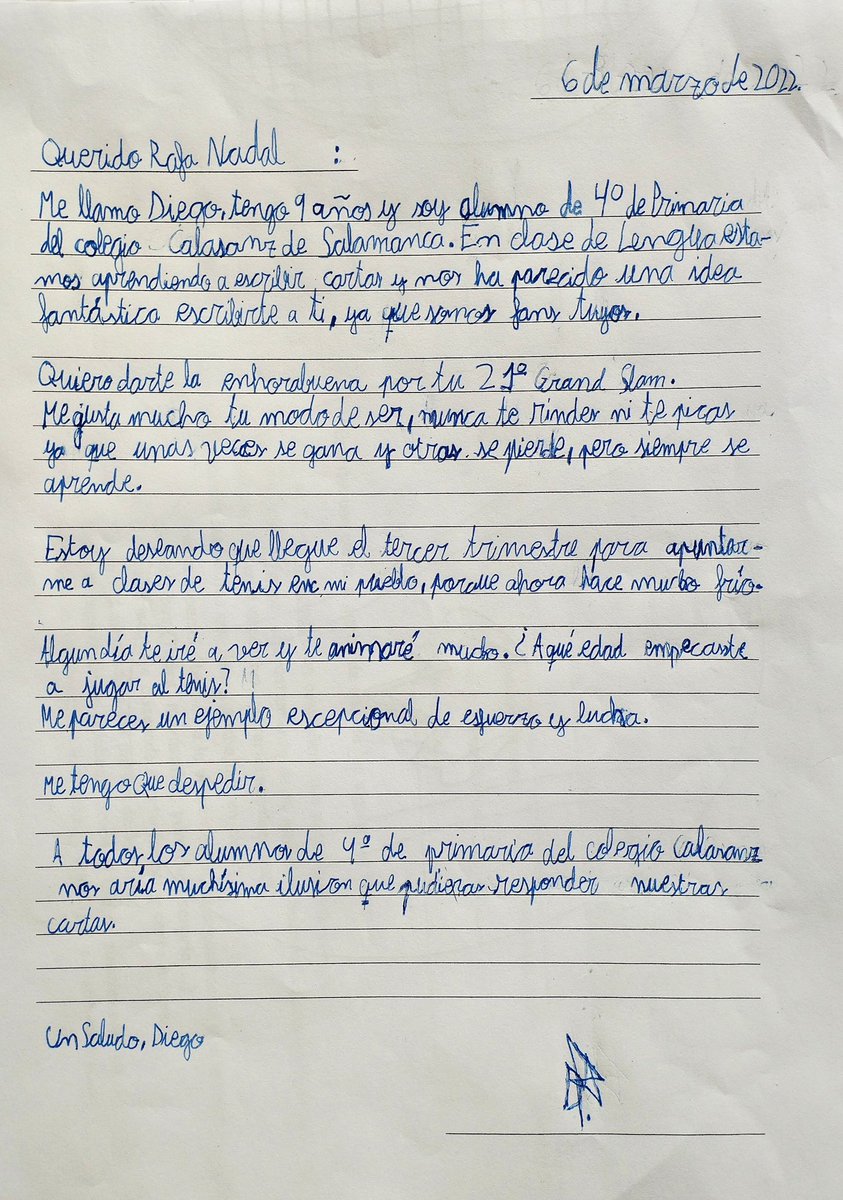 6 de marzo de 2022.
Querido Rafa Nadal :
Me llamo Diego, tengo 9 años y soy alumno de 4º de Primaria
del colegio Calasanz de Salamanca. En clase de Lengua esta-
mos aprendiendo a escribir cartas y nos ha parecido una idea
fantástica escribirte a ti, ya que somos fans tuyos.
Quiero darte la enhorabuena por tu 21º Grand Slam.
Me gusta mucho tu modo de ser, nunca te rindes ni te picas
ya que unas veces se gana y otras se pierde, pero siempre se
aprende.
Estoy deseando que llegue el tercer trimestre para apuntar-
me a clases de tenis en mi pueblo, porque ahora hace mucho frío.
Algun día te iré a ver y te animaré mucho. ¿A qué edad empecaste
a jugar al tenis?
Me pareces un ejemplo escepcional de esfuerzo y lucha.
Me tengo que despedir.
A todos los alumnos de 4º de primaria del colegio Calasanz
nos aría muchísima ilusion que pudieras responder nuestras
cartas.
Un Saludo, Diego